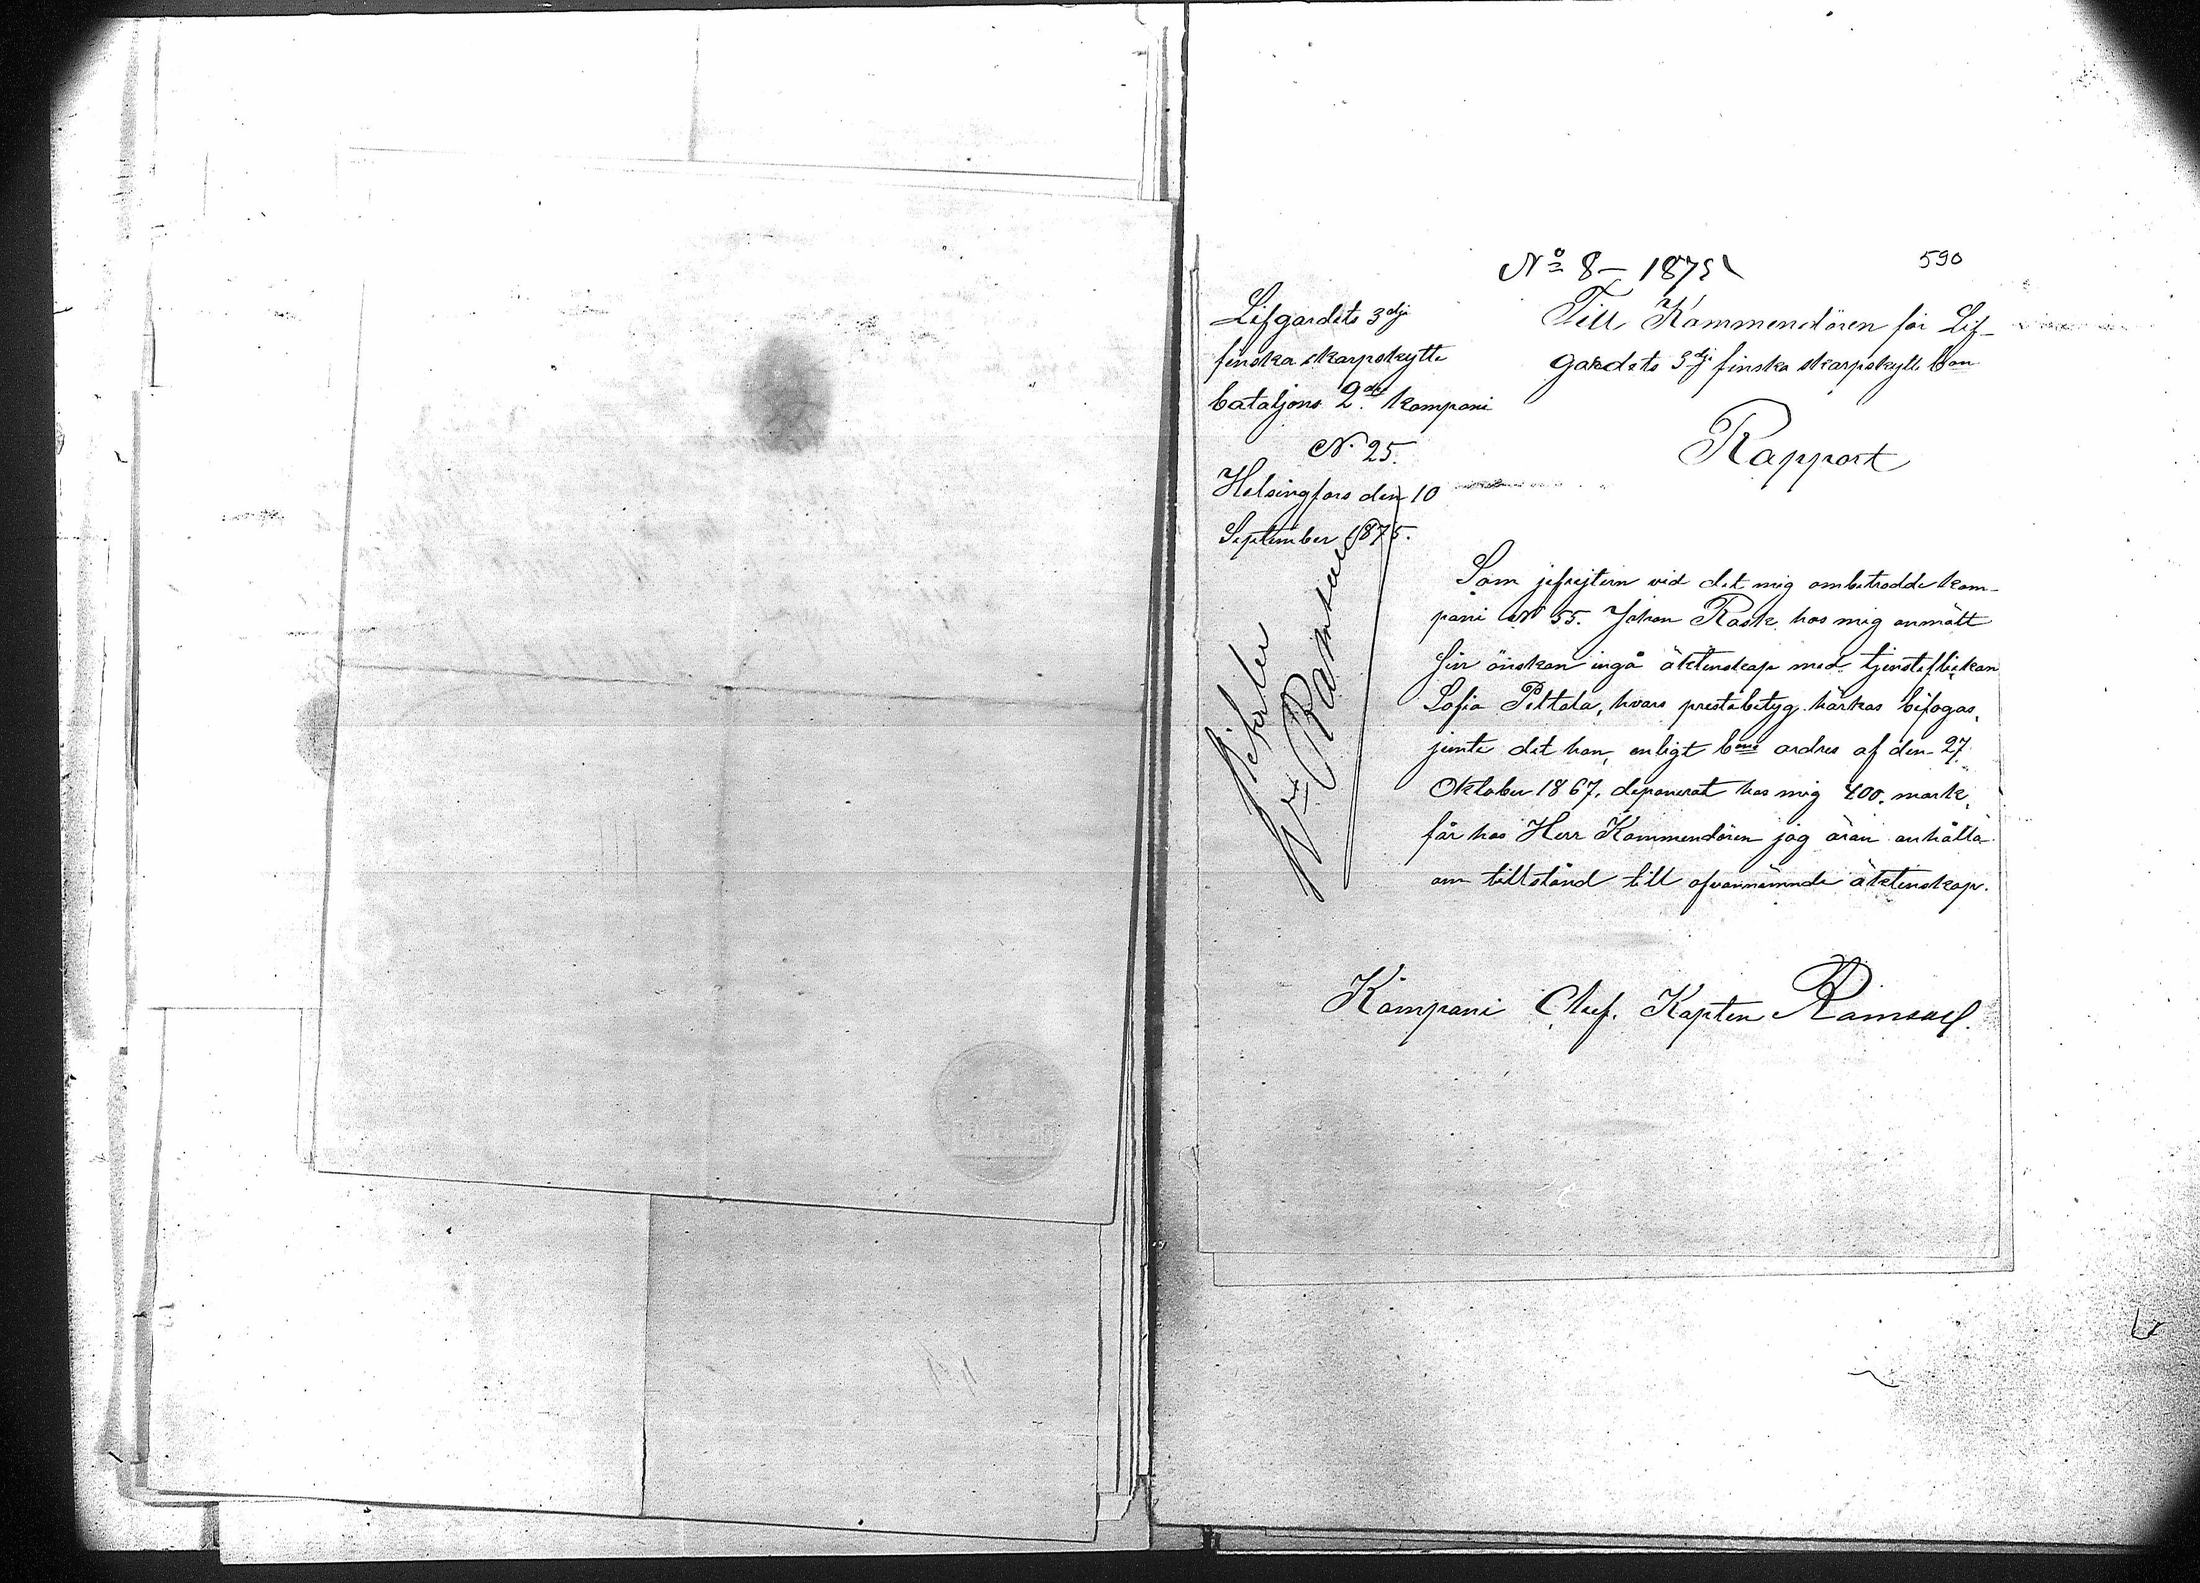 Nº 8 – 1875
590
Lifgardets 3dje
finska skarpskytte
bataljons 2dra kompani
N. 25.
Helsingfors den 10
September 1875.
Till Kommendören för Lif-
gardets 3dje finska skarpskytte bon
Rapport
Som jefrejtern vid det mig ombetrodde kom-
pani N 55. Johan Rask hos mig anmält
sin önskan ingå äktenskap med tjensteflickan
Sofia Peltola, hvars prestabetyg härhos bifogas,
jemte det han, enligt bons ordres af den 27
Oktober 1867, deponerat hos mig 400 mark,
får hos Herr Kommendören jag äran anhålla
om tillstånd till ofvannämnde äktenskap.
Kompani Chef. Kapten Ramsay.
Bifalles
Ramsay